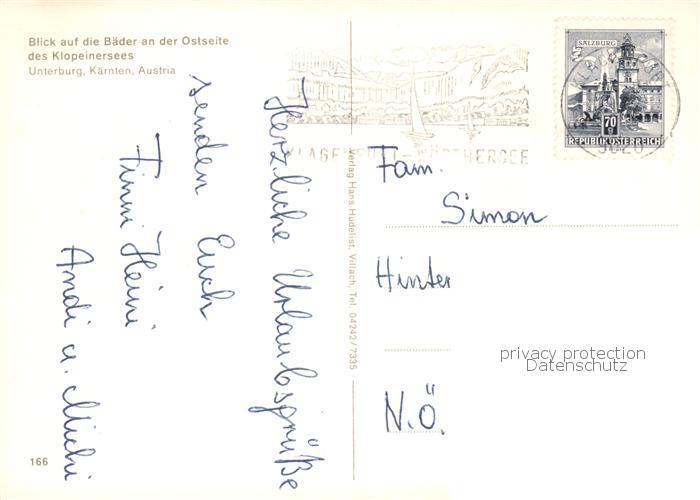 Blick auf die Bäder an der Ostseite
des Klopeinersees
Unterburg, Kärnten, Austria
Herzliche Urlaubsgrüße
senden Euch
Heini
Andi u. Michi
166
Verlag Hans Hudelist, Villach, Tel. 04242/7335
KLAGENFURT-WÖRTHERSEE
SALZBURG
70
g
REPUBLIK ÖSTERREICH
9020
Fam.
Simon
Hinter
privacy protection
Datenschutz
N.Ö.